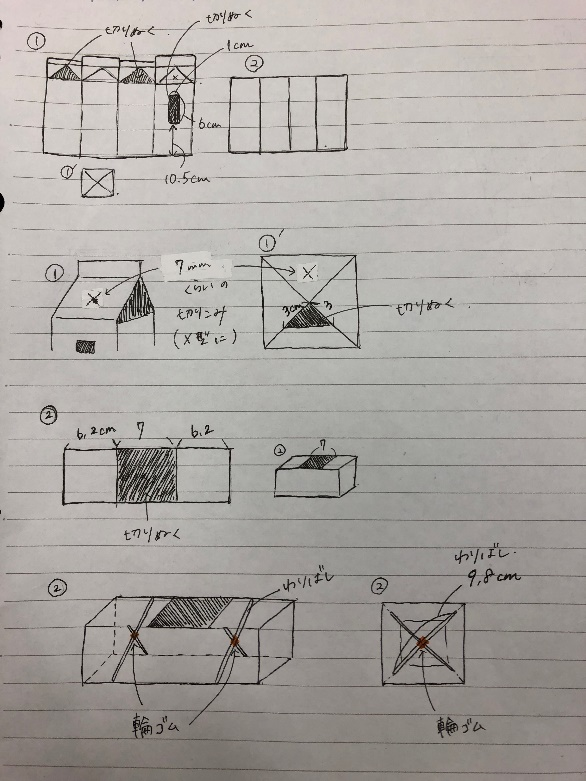 ①
切りぬく
切りぬく
1cm
②
6cm
①'
10.5cm
①
7mm
くらいの
切りこみ
(X型に)
①'
3cm
3
切りぬく
②
6.2cm 7 6.2
切りぬく
②
7
②
わりばし
輪ゴム
②
わりばし
9,8cm
輪ゴム